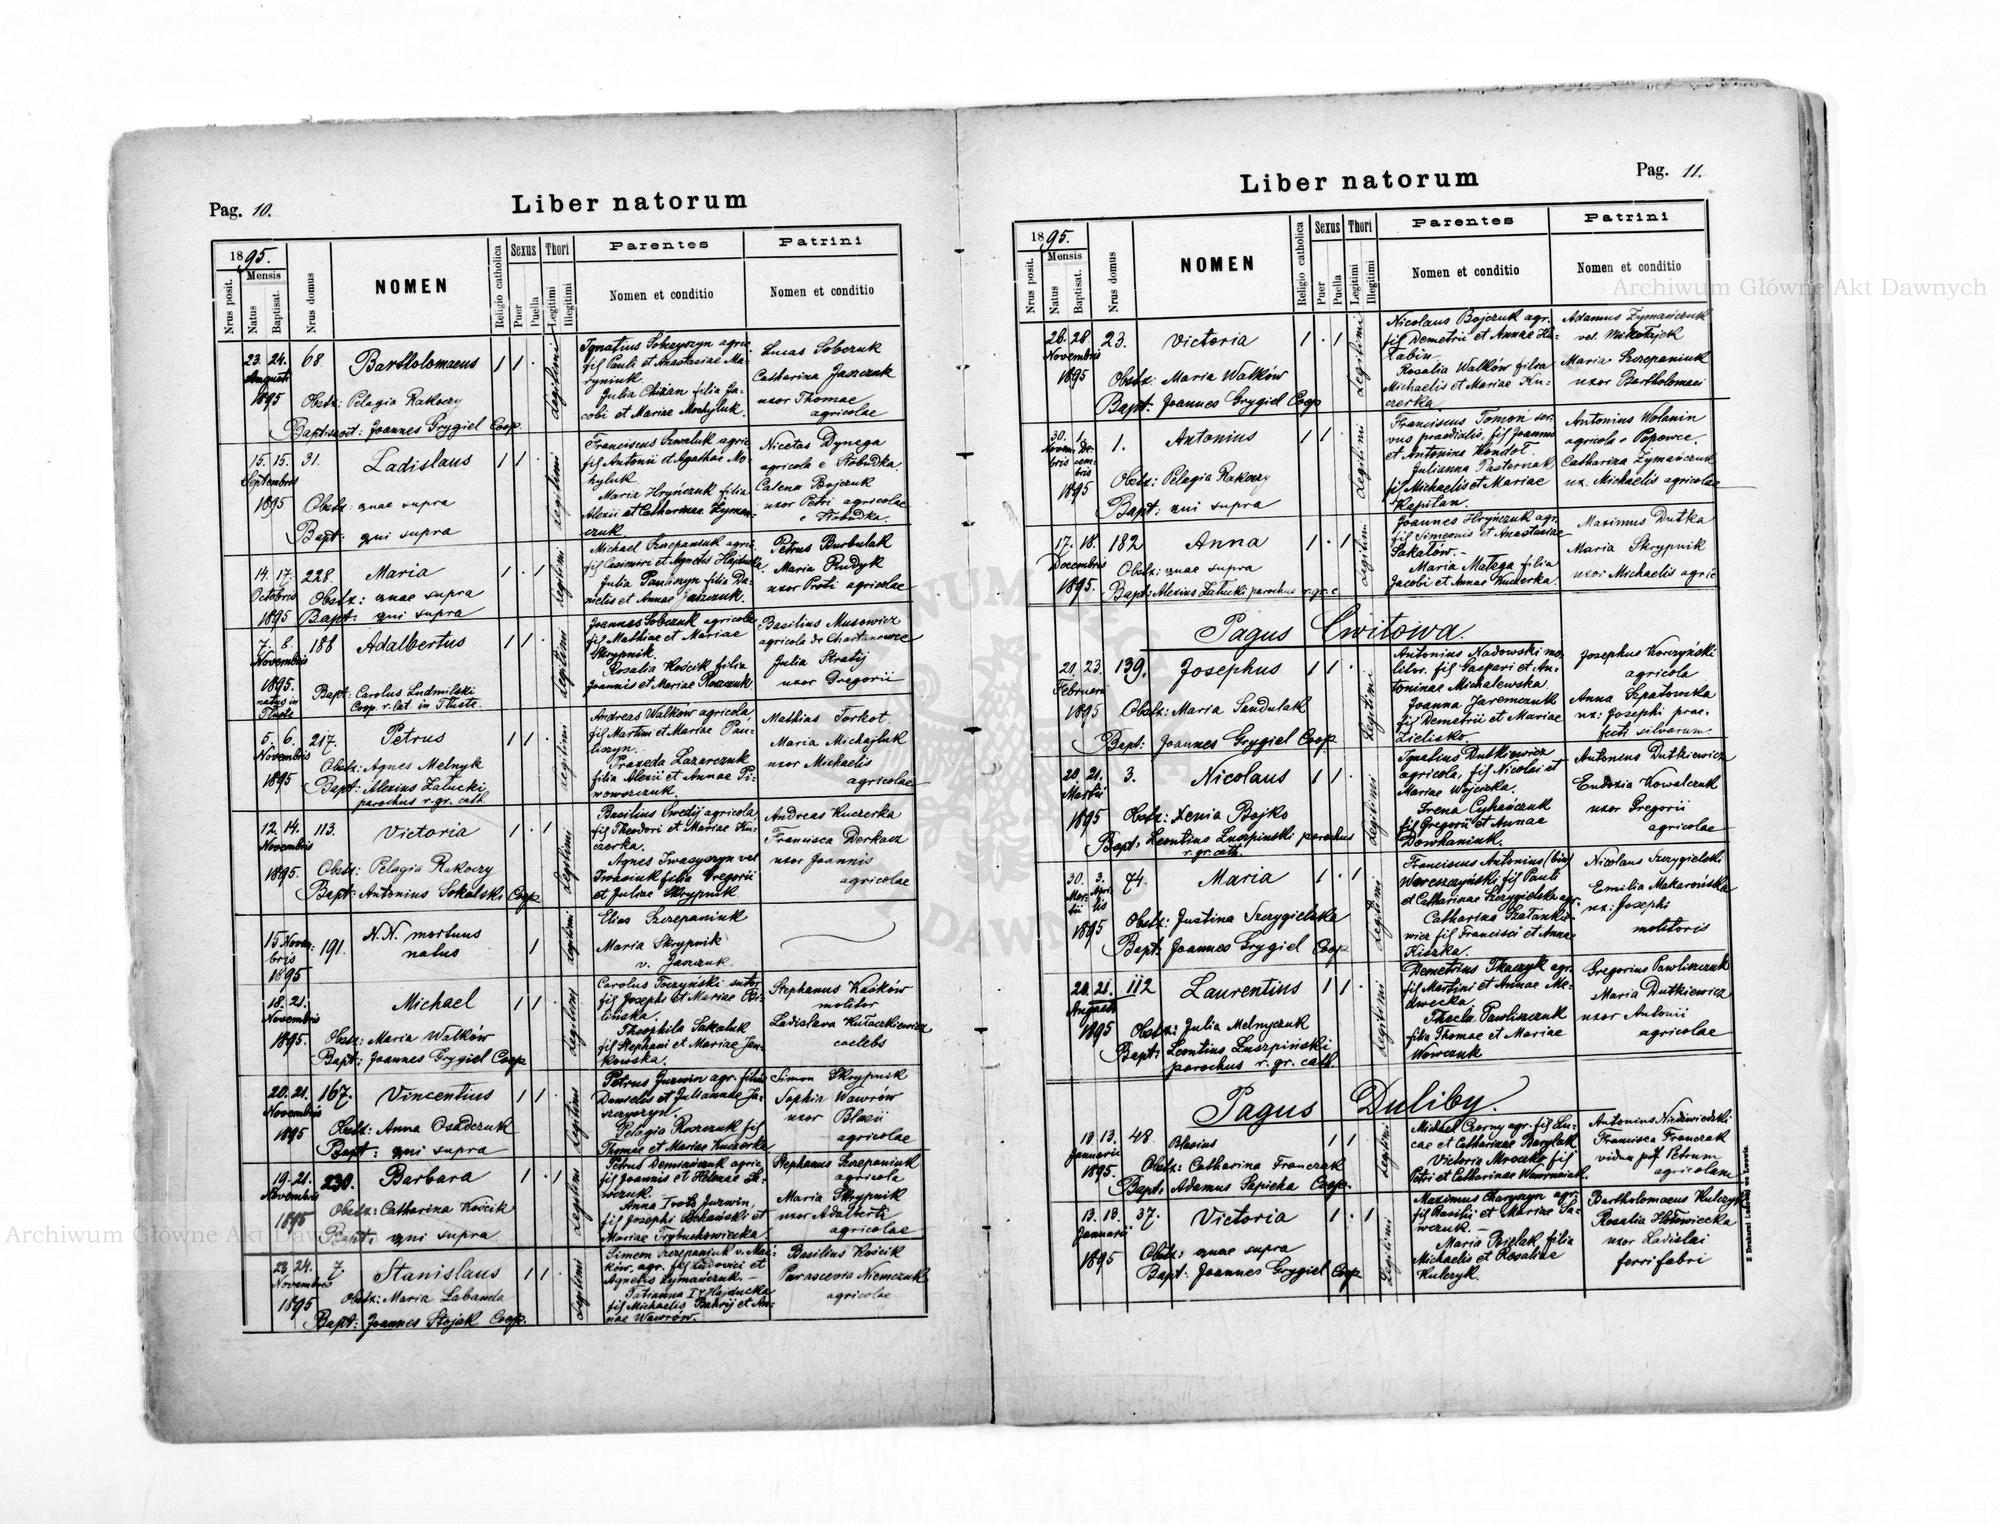 Pag. 10.
Liber natorum
1895.
Mensis
Nrus posit.
Natus
Baptisat.
Nrus domus
NOMEN
Religio catholica
Sexus
Puer
Puella
Thori
Legitimi
Illegitimi
Parentes
Nomen et conditio
Patrini
Nomen et conditio
23. 24.
Augusti
1895
68.
Bartholomaeus
1 1 .
Obstx: Pelagia Rakoczy
Baptisavit: Joannes Grygiel Coop
Legitimi
Ignatius Sobczyszyn agric.
fil Pauli et Anastasiae Ma-
ryniuk.
Julia Chixan filia Ja-
cobi et Mariae Mochyluk.
Lucas Sobczuk
Catharina Jaszczuk
uxor Thomae
agricolae
15. 15.
Septembris
1895
31.
Ladislaus
1 1 .
Obstx: quae supra
Bapt: qui supra
Legitimi
Franciscus Szwaluk agric
fil Antonii et Agathae Mo-
hyluk
Maria Hryńczuk filia
Alexii et Catharinae Zyman-
czuk
Nicetas Dynega
agricola e Słobudka.
Catena Bojczuk
uxor Petri agricolae
e Słobudka.
14. 17.
Octobris
1895
228.
Maria
1 . 1
Obstx: quae supra
Bapt: qui supra
Legitimi
Michael Szczepaniuk agric.
fil Casimiri et Agnetis Hajducka.
Julia Pauliszyn filia Da-
nielis et Annae Jaszczuk.
Petrus Burbulak
Maria Rudyk
uxor Proti agricolae
7. 8.
Novembris
1895.
natus in
Tłuste
188
Adalbertus
1 1 .
Bapt: Carolus Ludmilski
Coop. r. lat. in Tłuste.
Legitimi
Joannes Sobczuk agricola
fil Mathiae et Mariae
Skrypnik.
Rosalia Kościk filia
Joannis et Mariae Roszczuk
Basilius Musowicz
agricola de Chartanowce
Julia Stratij
uxor Gregorii
5. 6.
Novembris
1895
217.
Petrus
1 1 .
Obstx: Agnes Melnyk
Bapt: Alexius Załucki
parochus r. gr. cath.
Legitimi
Andreas Walków agricola
fil Martini et Mariae Pau-
liszyn.
Praxeda Lazarczuk
filia Alexii et Annae Pi-
woworczuk.
Mathias Torkot.
Maria Michajluk
uxor Michaelis
agricolae
12. 14.
Novembris
1895.
113.
Victoria
1 . 1
Obstx: Pelagia Rakoczy
Bapt: Antonius Sokalski Coop
Legitimi
Basilius Swedij agricola
fil Theodori et Mariae Ku-
czerka.
Agnes Iwasyszyn vel
Iwasiuk filia Gregorii
et Juliae Skrypnik
Andreas Kuczerka
Francisca Derkacz
uxor Joannis
agricolae
15 Novem-
bris
1895
191.
N.N. mortuus
natus
1
Legitimi
Elias Szczepaniuk
Maria Skrypnik
v. Jaszczuk.
18. 21.
Novembris
1895.
Michael
1 1 .
Obstx: Maria Walków
Bapt: Joannes Grygiel Coop
Legitimi
Carolus Toczyński sutor
fil Josephi et Mariae Bi-
lińska.
Theophila Sakaluk
fil Stephani et Mariae Jan-
kowska.
Stephanus Kaśków
molitor
Ladislava Kułaczkiewicz
caelebs
20. 21.
Novembris
1895
167.
Vincentius
1 1 .
Obstx: Anna Osadczuk
Bapt: qui supra
Legitimi
Petrus Jurwin agr. filius
Danielis et Juliannae Ja-
Pelagia Roszczuk fil
Thomae et Mariae Kuczerka
Simon Skrypnik
Sophia Wawrów
uxor Blasii
agricolae
19. 21.
Novembris
1895
230.
Barbara
1 . 1
Obstx: Catharina Kościk
Bapt: qui supra
Legitimi
Petrus Demiańczuk agric.
fil Joannis et Helenae
Anna I voto Jurwin,
fil Josephi Bochański et
Mariae Trybuchowiecka.
Stephanus Szczepaniuk
agricola
Maria Skrypnik
uxor Adalberti
agricolae
23. 24.
Novembris
1895
7.
Stanislaus
1 1 .
Obstx: Maria Labanda
Bapt: Joannes Stojak Coop.
Legitimi
Simeon Szczepaniuk v. Mać-
ków. agr. fil Ludovici et
Agnetis Zymańczuk. -
Tatianna I v Hajducka
fil Michaelis Bakrij et An-
nae Wawrów.
Basilius Kościk
Parascevia Niemczuk
agricolae
Pag. 11.
Liber natorum
1895.
Mensis
Nrus posit.
Natus
Baptisat.
Nrus domus
NOMEN
Religio catholica
Sexus
Puer
Puella
Thori
Legitimi
Illegitimi
Parentes
Nomen et conditio
Patrini
Nomen et conditio
26. 28
Novembris
1895
23.
Victoria
1 . 1
Obstx: Maria Walków
Bapt: Joannes Grygiel Coop
Legitimi
Nicolaus Bojczuk agr.
fil Demetrii et Annae Ha-
rabin
Rosalia Walków filia
Michaelis et Mariae Ku-
czerka
Adamus Zymańczuk
vel. Mikołajek
Maria Szczepaniuk
uxor Bartholomaei
30. 1.
Novem- De-
bris cem-
bris
1895
1.
Antonius
1 1 .
Obstx: Pelagia Rakoczy
Bapt: qui supra
Legitimi
Franciscus Tomoń ser-
vus praedialis, fil Joannis
et Antonina Kondoł.
Julianna Pasternak
fil Michaelis et Mariae
Kapitan.
Antonius Wolanin
agricola e Popowce.
Catharina Zymańczuk
ux. Michaelis agricolae
17. 18.
Decembris
1895.
182
Anna
1 . 1
Obstx: quae supra
Bapt: Alexius Załucki parochus r. gr. c
Legitimi
Joannes Hryńczuk agr.
fil Simeonis et Anastasiae
Sakałów. -
Maria Małega filia
Jacobi et Annae Kuczerka.
Maximus Dutka
Maria Skrypnik
uxor Michaelis agric
Pagus Cwitowa.
21. 23.
Februarii
1895
139.
Josephus
1 1 .
Obstx: Maria Sandulak
Bapt: Joannes Grygiel Coop
Legitimi
Antonius Nadowski mo-
litor. fil Gaspari et An-
toninae Michalewska.
Joanna Jaremczuk
fil Demetrii et Mariae
Zielisko.
Josephus Korczyński
agricola
Anna Szpatowska
ux: Josephi prae-
fecti silvarum.
20. 21.
Martii
1895
3.
Nicolaus
1 1 .
Obstx: Xenia Bojko
Bapt: Leontius Luszpinski parochus
r. gr. cath.
Legitimi
Ignatius Dutkiewicz
agricola, fil Nicolai et
Mariae Wojczka.
Irena Cyhańczuk
fil Gregorii et Annae
Dowhaniuk.
Antonius Dutkiewicz
Eudoxia Kowalczuk
uxor Gregorii
agricolae
30. 3.
Mar- Apri-
tii lis
1895
74.
Maria
1 . 1
Obstx: Justina Szczygielska
Bapt: Joannes Grygiel Coop
Legitimi
Franciscus Antonius (bin)
Wereszczyński fil Pauli
et Catharinae Szczygielska agr.
Catharina Szałankie-
wicz fil Francisci et Annae
Kiszka.
Nicolaus Szczygielski
Emilia Makarońska
ux: Josephi
molitoris
20. 21.
Augusti
1895
112
Laurentius
1 1 .
Obstx: Julia Melnyczuk
Bapt: Leontius Luszpiński
parochus r. gr. cath.
Legitimi
Demetrius Tkaczyk agr.
fil Martini et Annae Me-
dwecka.
Thecla Pawliszczuk
filia Thomae et Mariae
Wowczuk
Gregorius Pawliszczuk
Maria Dutkiewicz
uxor Antonii
agricolae
Pagus Duliby.
10. 13.
Januarii
1895.
48.
Blasius
1 1 .
Obstx: Catharina Franczak
Bapt: Adamus Sapieha Coop.
Legitimi
Michael Czorny agr. fil Lu-
cae et Catharinae Barylak
Victoria Mroczko fil
Petri et Catharinae Wawrniaik.
Antonius Niedzwiedzki
Francisca Franczak
vidua p. Petrum
agricolam
13. 18.
Januarii
1895
37.
Victoria
1 . 1
Obstx: quae supra
Bapt: Joannes Grygiel Coop
Legitimi
Maximus Charyszyn agr.
fil Basilii et Mariae Sa-
wczuk. -
Maria Bielak filia
Michaelis et Rosaliae
Kulczyk.
Bartholomaeus Kulczyk
Rosalia Hołowiecka
uxor Ladislai
ferri fabri
Z Drukarni Ludowej we Lwowie.
Archiwum Główne Akt Dawnych
Archiwum Główne Akt Dawnych